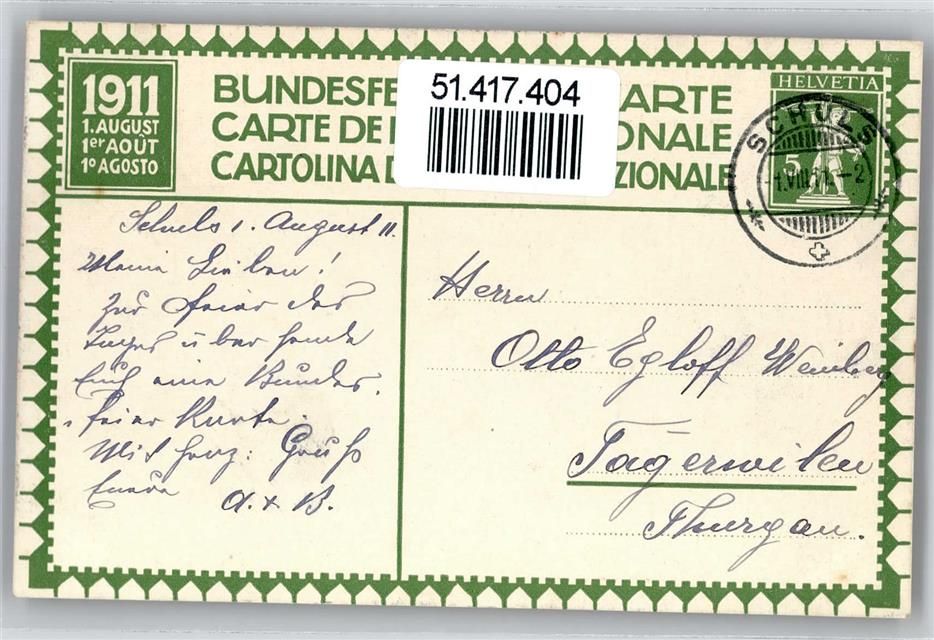 1911
1. AUGUST
1er AOÛT
1º AGOSTO
BUNDESFE ARTE
CARTE DE ONALE
CARTOLINA D ZIONALE
51.417.404
HELVETIA
5
SCHULS
1.VIII.11.-2
Schuls 1. August 11.
Meine Lieben!
Zur Feier des
Tages übersende
Euch eine Bundes-
feier Karte.
Mit herz: Gruß
Eure A. + B.
Herrn
Otto Egloff Weinberg
Tägerwilen
Thurgau.